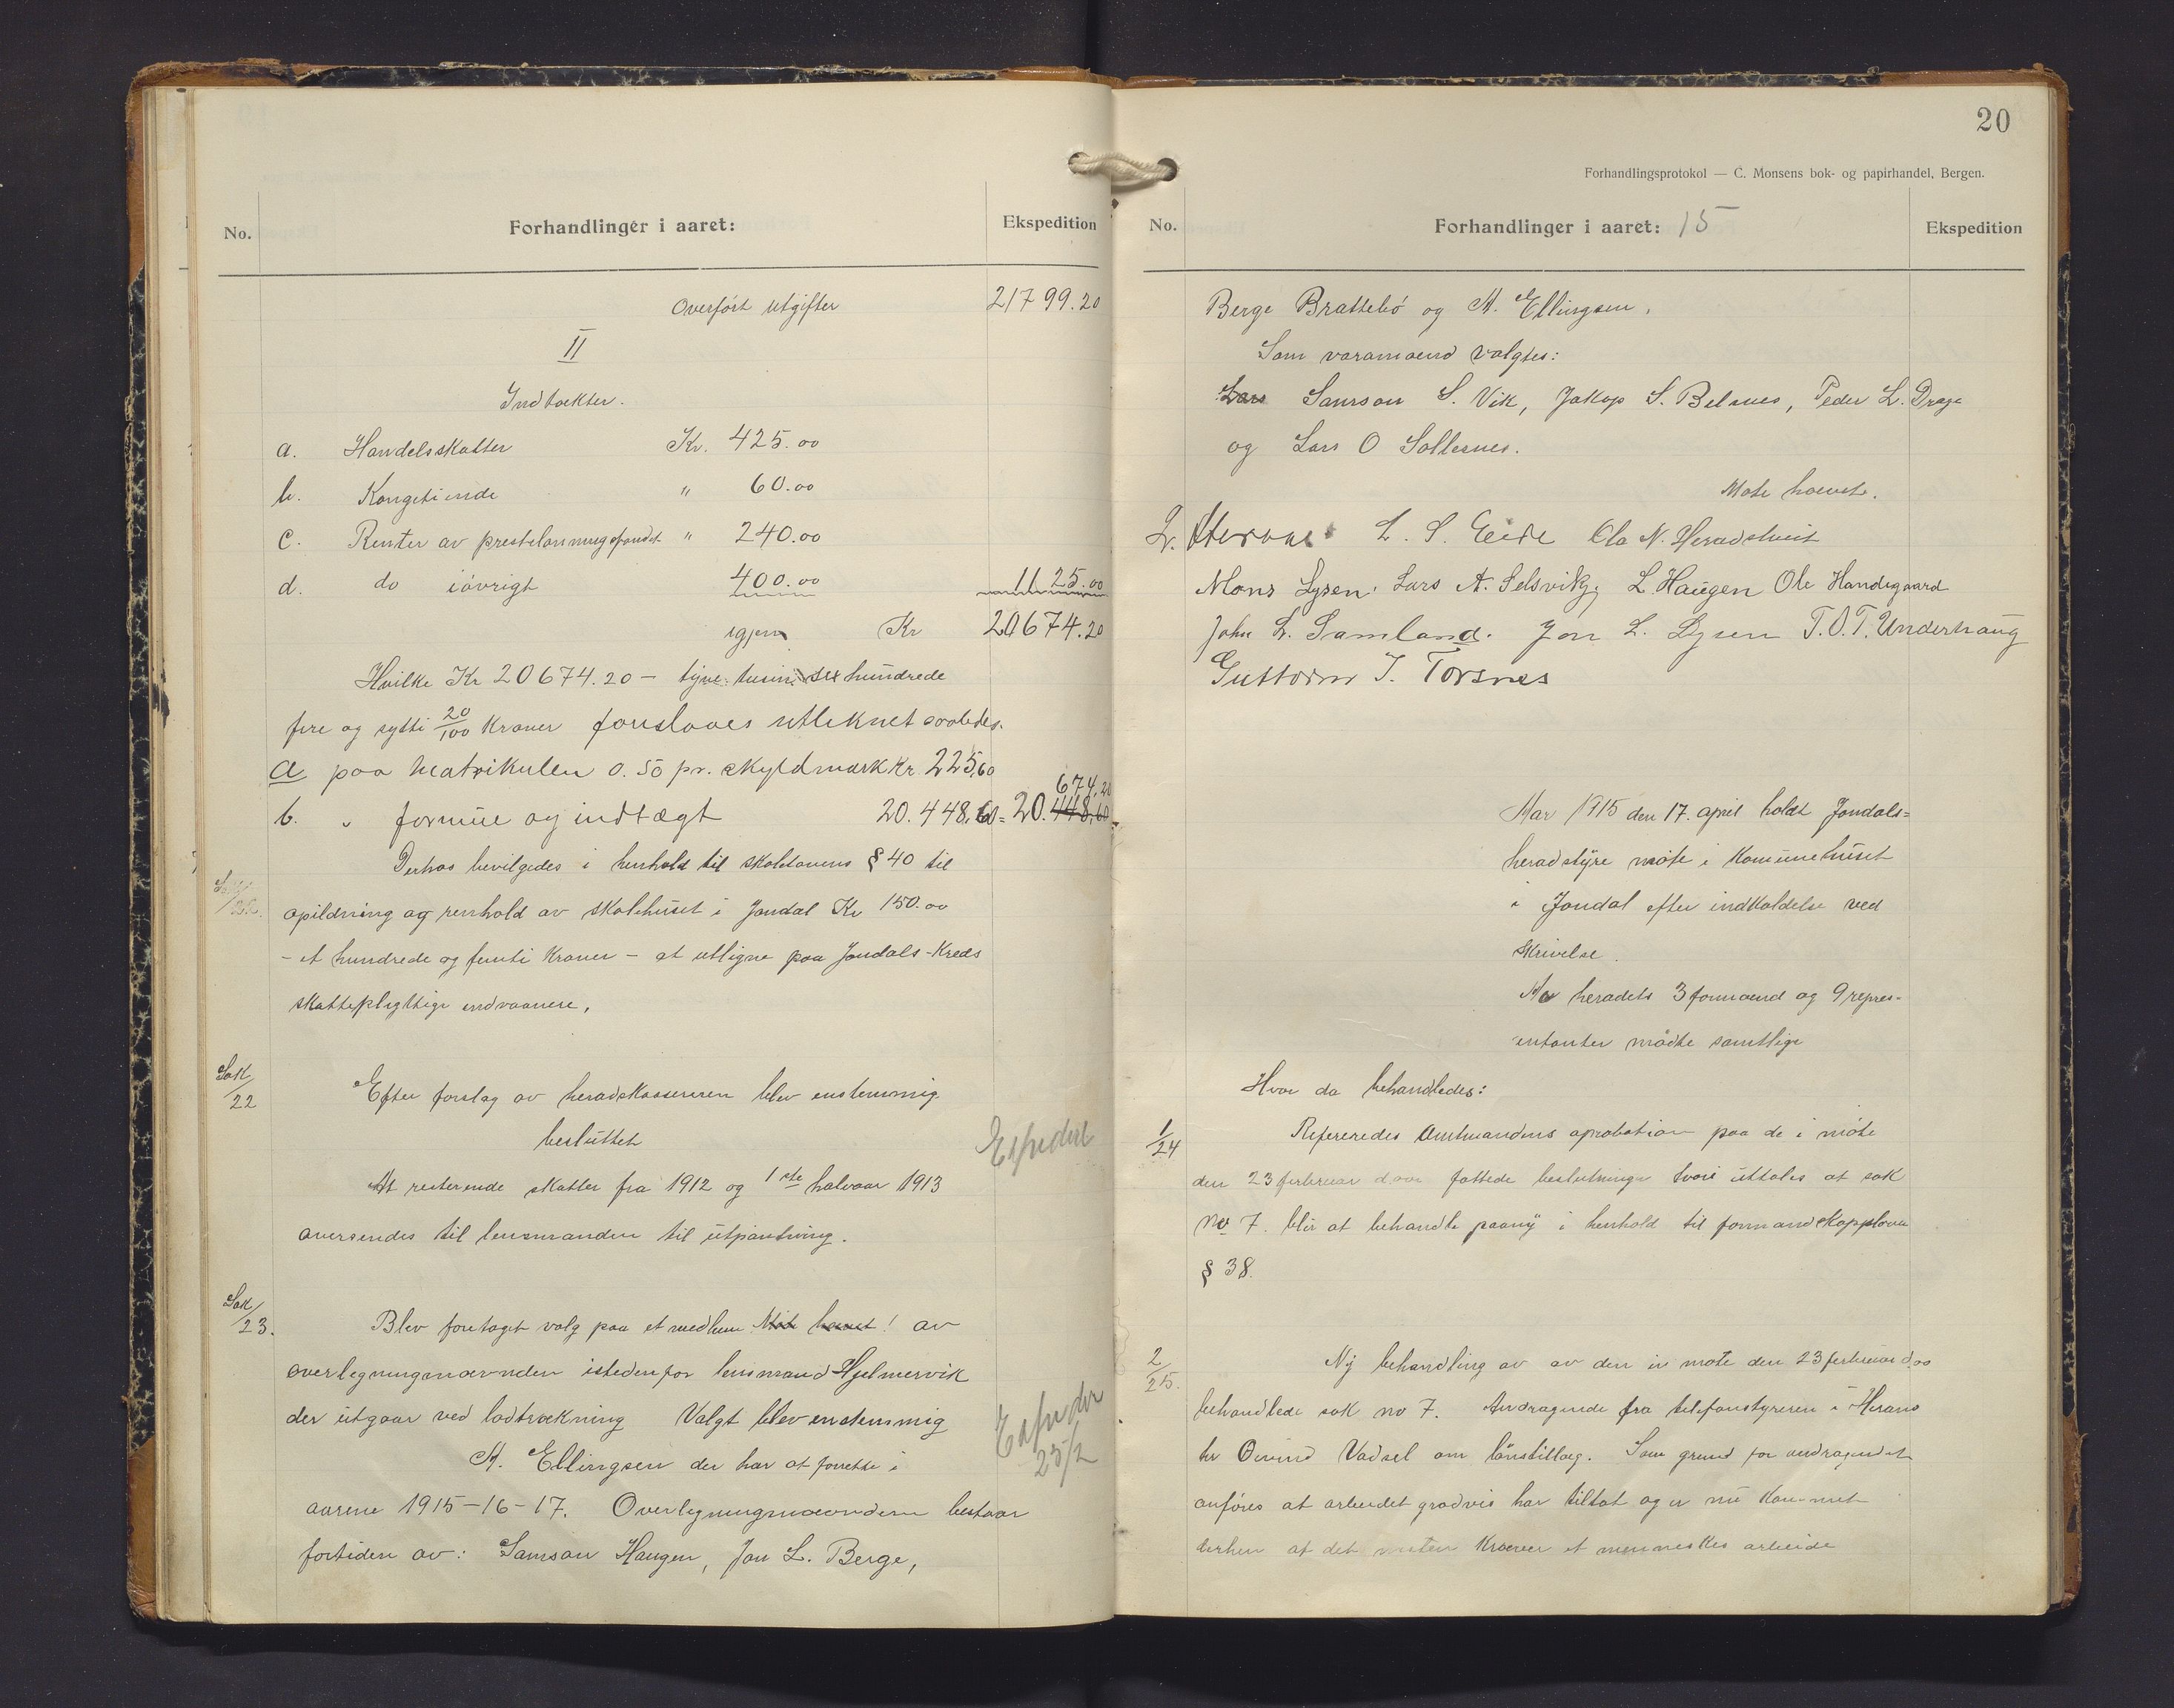 No.
Forhandlinger i aaret:
Ekspedition
Overført utgifter 21799.20
II
Indtækter.
a. Handelsskatter Kr. 425.00
b. Kongetiende " 60.00
c. Renter av prestelønningsfondet " 240.00
d. do iøvrigt 400.00 1125.00
igjen Kr 20674.20
Hvilke Kr 20674.20 – tyve tusin sex hundrede
fire og sytti 20/100 Kroner foreslaaes utleknet saaledes.
a paa Matrikulen 0.50 pr. skyldmark Kr 225,60
674,20
b. " formue og indtægt 20.448,60 = 20.448,60
Derhos bevilgedes i henhold til skolelovens § 40 til
opildning og renhold av skolehuset i Jondal Kr 150.00
– et hundrede og femti Kroner – at utligne paa Jondals-Kreds
skattepligtige indvaanere.
Sak/22
Efter forslag av heradskassereren blev enstemmig
besluttet
Espedert
At resterende skatter fra 1912 og 1ste halvaar 1913
oversendes til lensmanden til utpantning.
Sak/23.
Blev foretaget valg paa et medlem Møte hævet! av
overlegningsnævnden istedenfor lensmand Hjelmervik
der utgaar ved lodtrækning Valgt blev enstemmig
Espeder 25/2
A. Ellingsen der har at forrette i
aarene 1915–16–17. Overlegningsnævnden bestaar
fortiden av: Samson Haugen, Jon L. Berge,
20
Forhandlingsprotokol — C. Monsens bok- og papirhandel, Bergen.
No.
Forhandlinger i aaret: 15
Ekspedition
Berge Brattebø og A. Ellingsen.
Som varamænd valgtes:
Lars Samson S. Vik, Jakop S. Belsnes, Peder L. Drage
og Lars O Sollesnes.
Møte hævet.
L. S. Eide Ola N. Heradstveit
Mons Lysen. Lars A. Selsvik, L Haugen Ole Handegaard
John L. Samland. Jon L. Lysen T.O.T. Underhaug
Guttorm J. Torsnes
Aar 1915 den 17. april holdt Jondals=
heradstyre møte i Komunehuset
i Jondal efter indkaldelse ved
skrivelse.
Av heradets 3 formænd og 9 repres-
entanter mødte samtlige
Hvor da behandledes:
1/24
Refereredes Amtmandens aprobation paa de i møte
den 23 februar d.aa fattede beslutninger hvori uttales at sak
No 7. blir at behandle paany i henhold til formandskapsloven
§ 38.
2/25.
Ny behandling av av den in møte den 23 februar d.aa
behandlede sak no 7. Andragende fra telefonstyreren i Herans
hr Øivind Vadsel om lønstillæg. Som grund for andragendet
anføres at arbeidet gradvis har tiltat og er nu kommet
derhen at det næsten kræver et menneskes arbeide